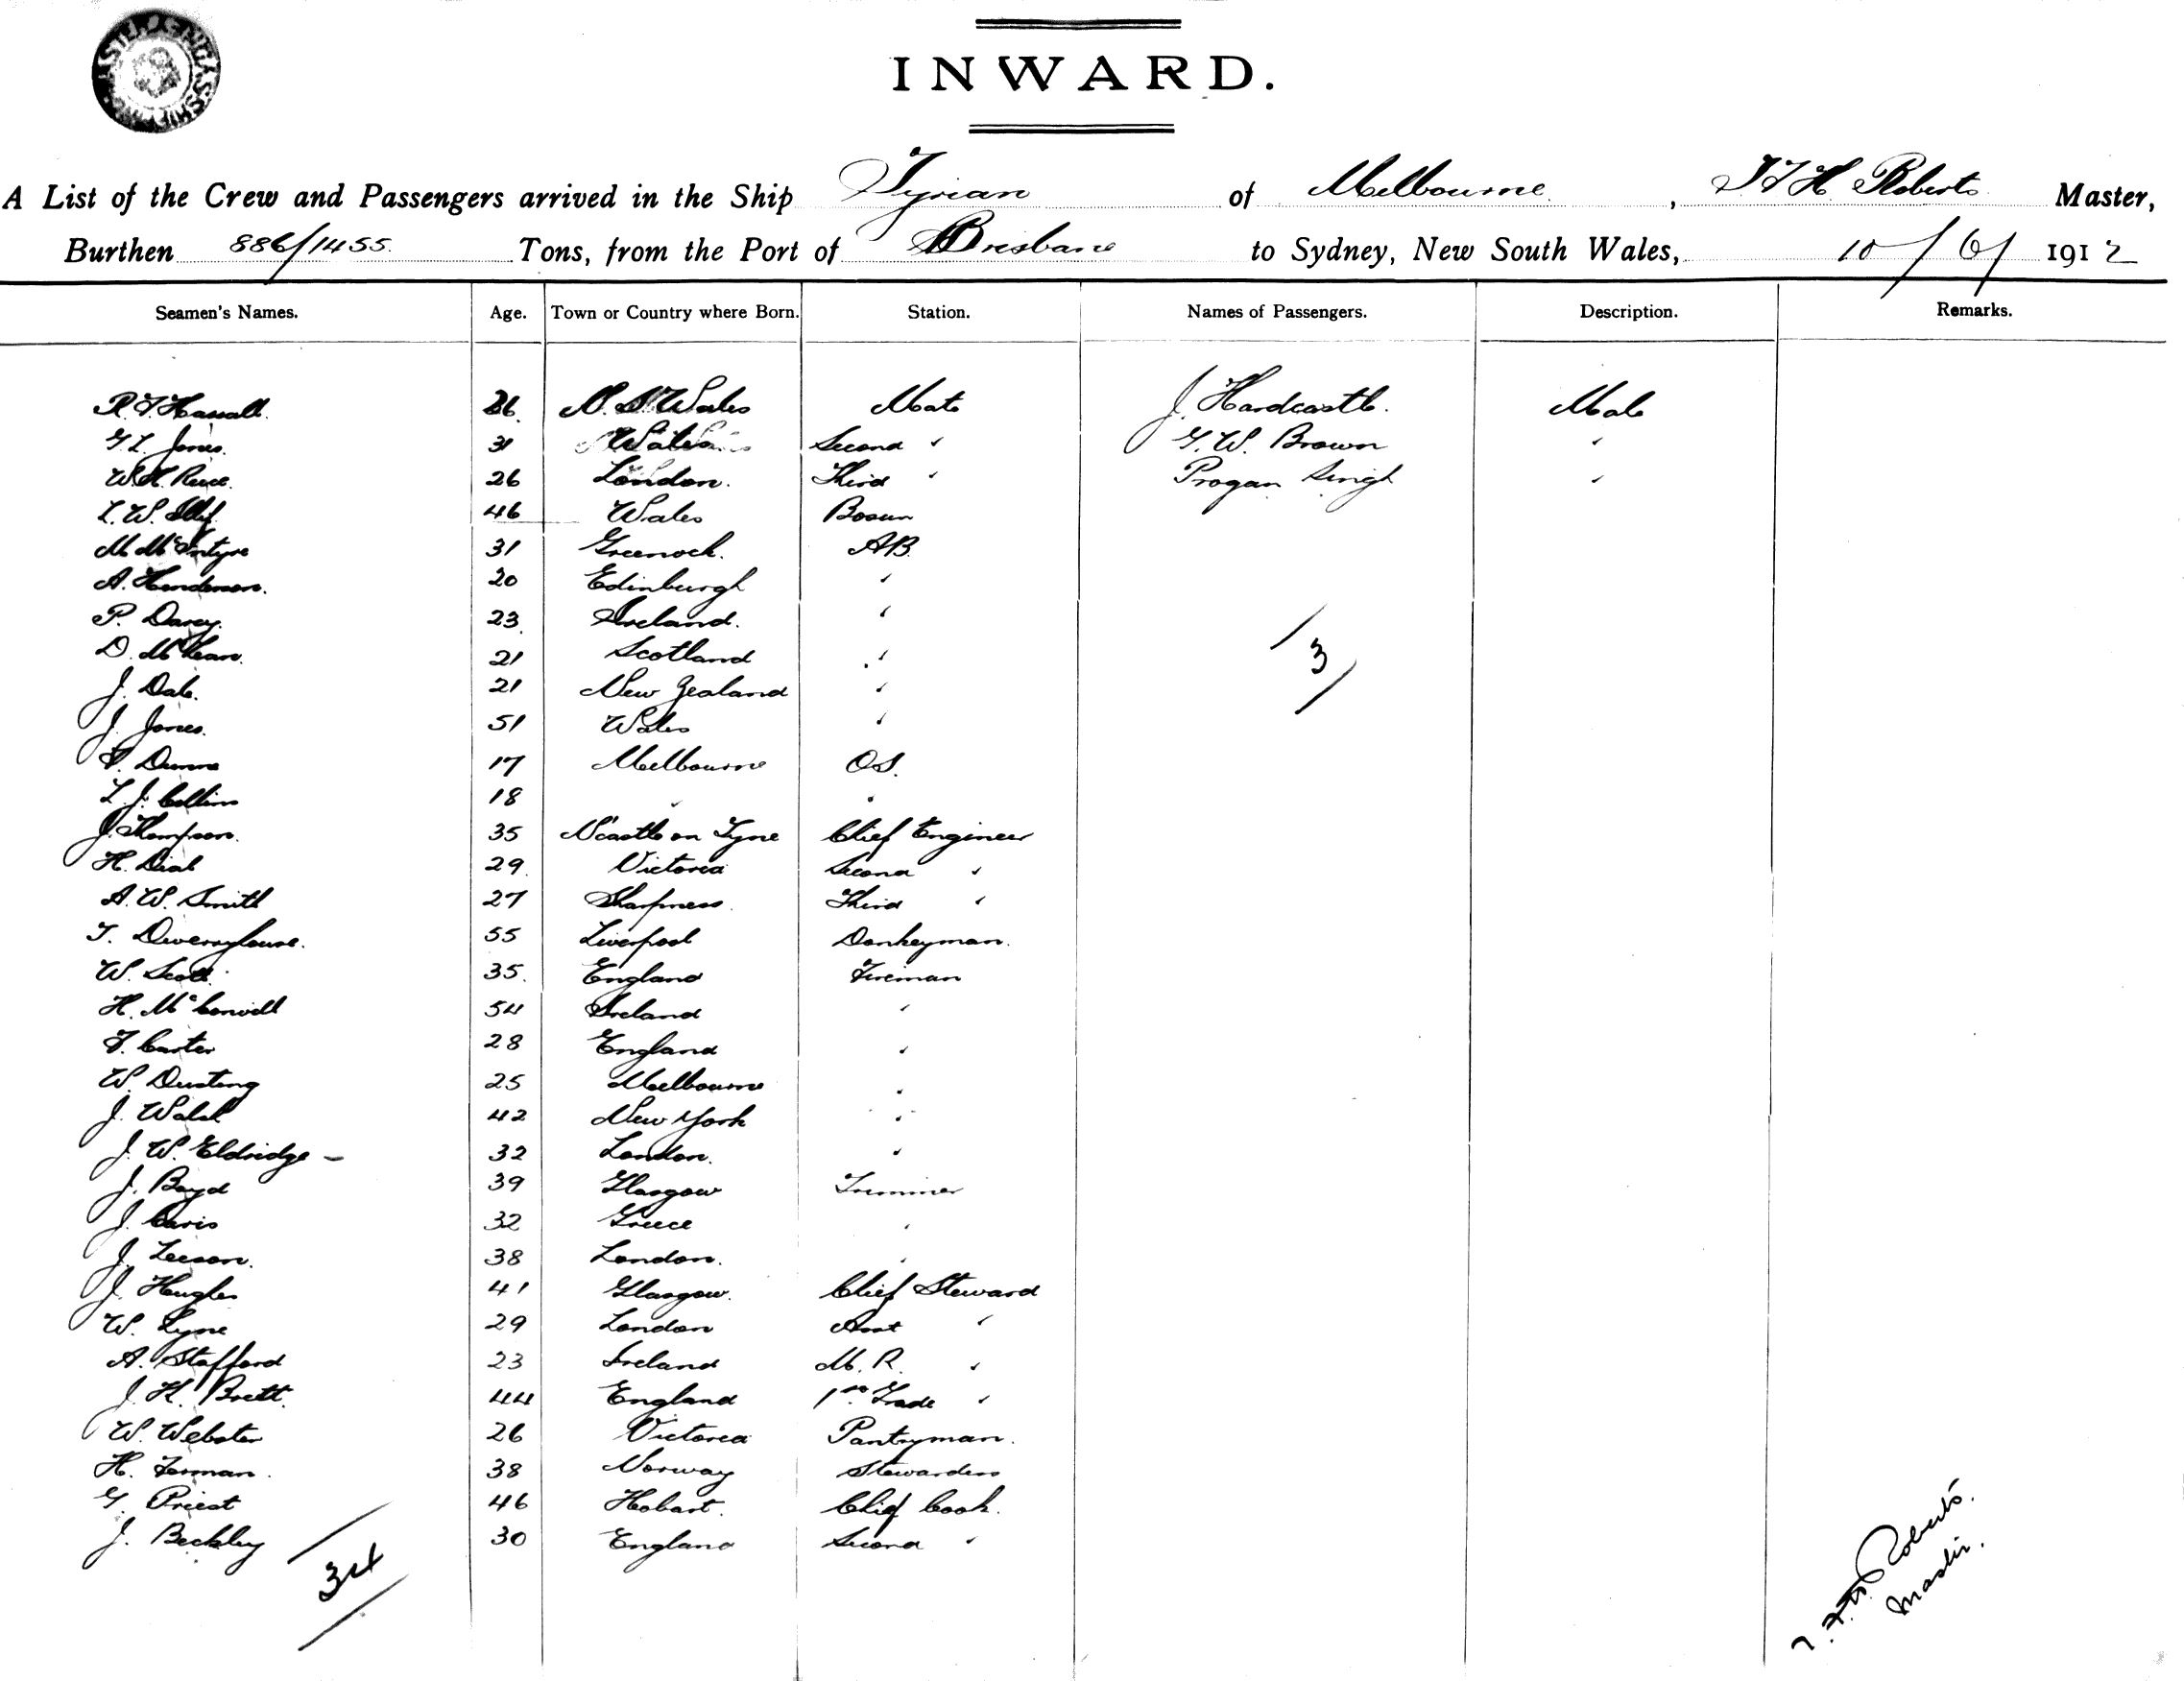 INWARD.
A List of the Crew and Passengers arrived in the Ship Tyrian of Melbourne, Roberts Master,
Burthen 886/1455 Tons, from the Port of Brisbane to Sydney, New South Wales, 10/6/ 1912
Seamen's Names. Age. Town or Country where Born. Station. Names of Passengers. Description. Remarks.
26 N. S. Wales Mate J. Hardcastle. Male
Jones. 31 Wales Second " G. W. Brown "
26 London. Third " Progan Singh "
46 Wales Bosun
M McIntyre 31 Greenock. AB.
A. Henderson. 20 Edinburgh "
P. Darcy. 23 Ireland. "
D. McLean. 21 Scotland "
J. Dale. 21 New Zealand "
J. Jones. 51 Wales "
Dunne 17 Melbourne OS.
L. J. Collins 18 " "
J. Thompson. 35 N'castle on Tyne Chief Engineer
H. Deal 29. Victoria Second "
A. W. Smith 27 Sharpness. Third "
T. Diveryhouse. 55 Liverpool Donkeyman.
W. Scott. 35. England Fireman
H. McConvill 54 Ireland "
F. Carter 28 England "
W. Dusting 25 Melbourne "
J. Walsh 42 New York "
J. W. Eldridge – 32 London. "
J. Boyd 39 Glasgow Trimmer
J. Caris 32 Greece "
J. Leeson. 38 London. "
J. Hughes 41 Glasgow. Chief Steward
W. Lyne 29 London Asst "
A. Stafford 23 Ireland M. R. "
J. H. Brett. 44 England 1st Grade "
W. Webster 26 Victoria Pantryman.
H. Forman. 38 Norway Stewardess
G. Priest 46 Hobart. Chief Cook.
J. Beckley 30 England Second "
3
34
Roberts.
Master.